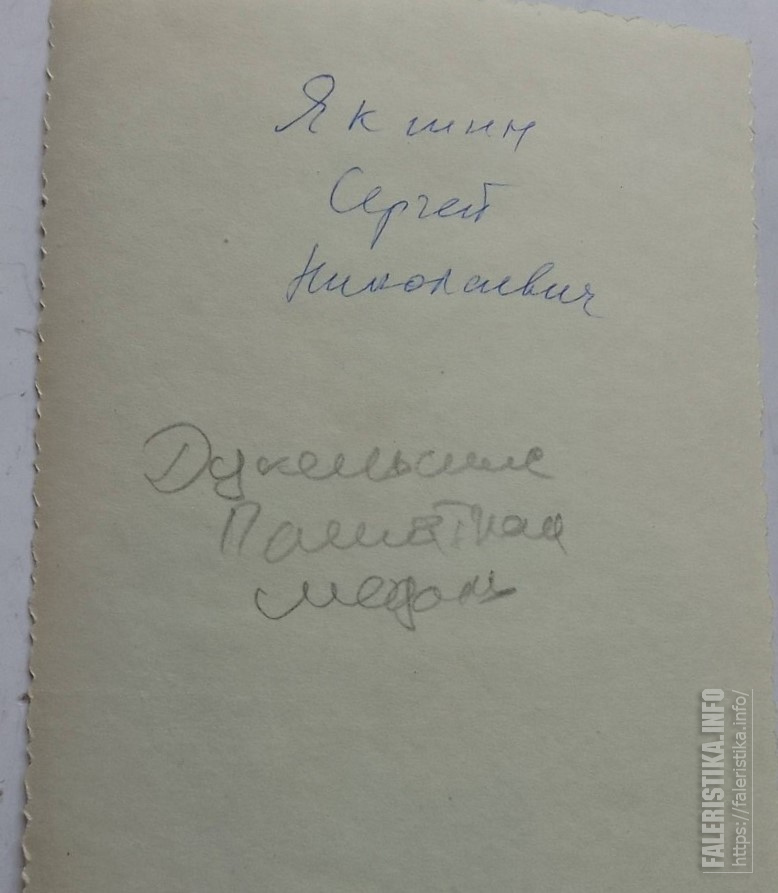 Якшин
Сергей
Николаевич
Дукельские
Памятная
медаль
FALERISTIKA.INFO
https://faleristika.info/